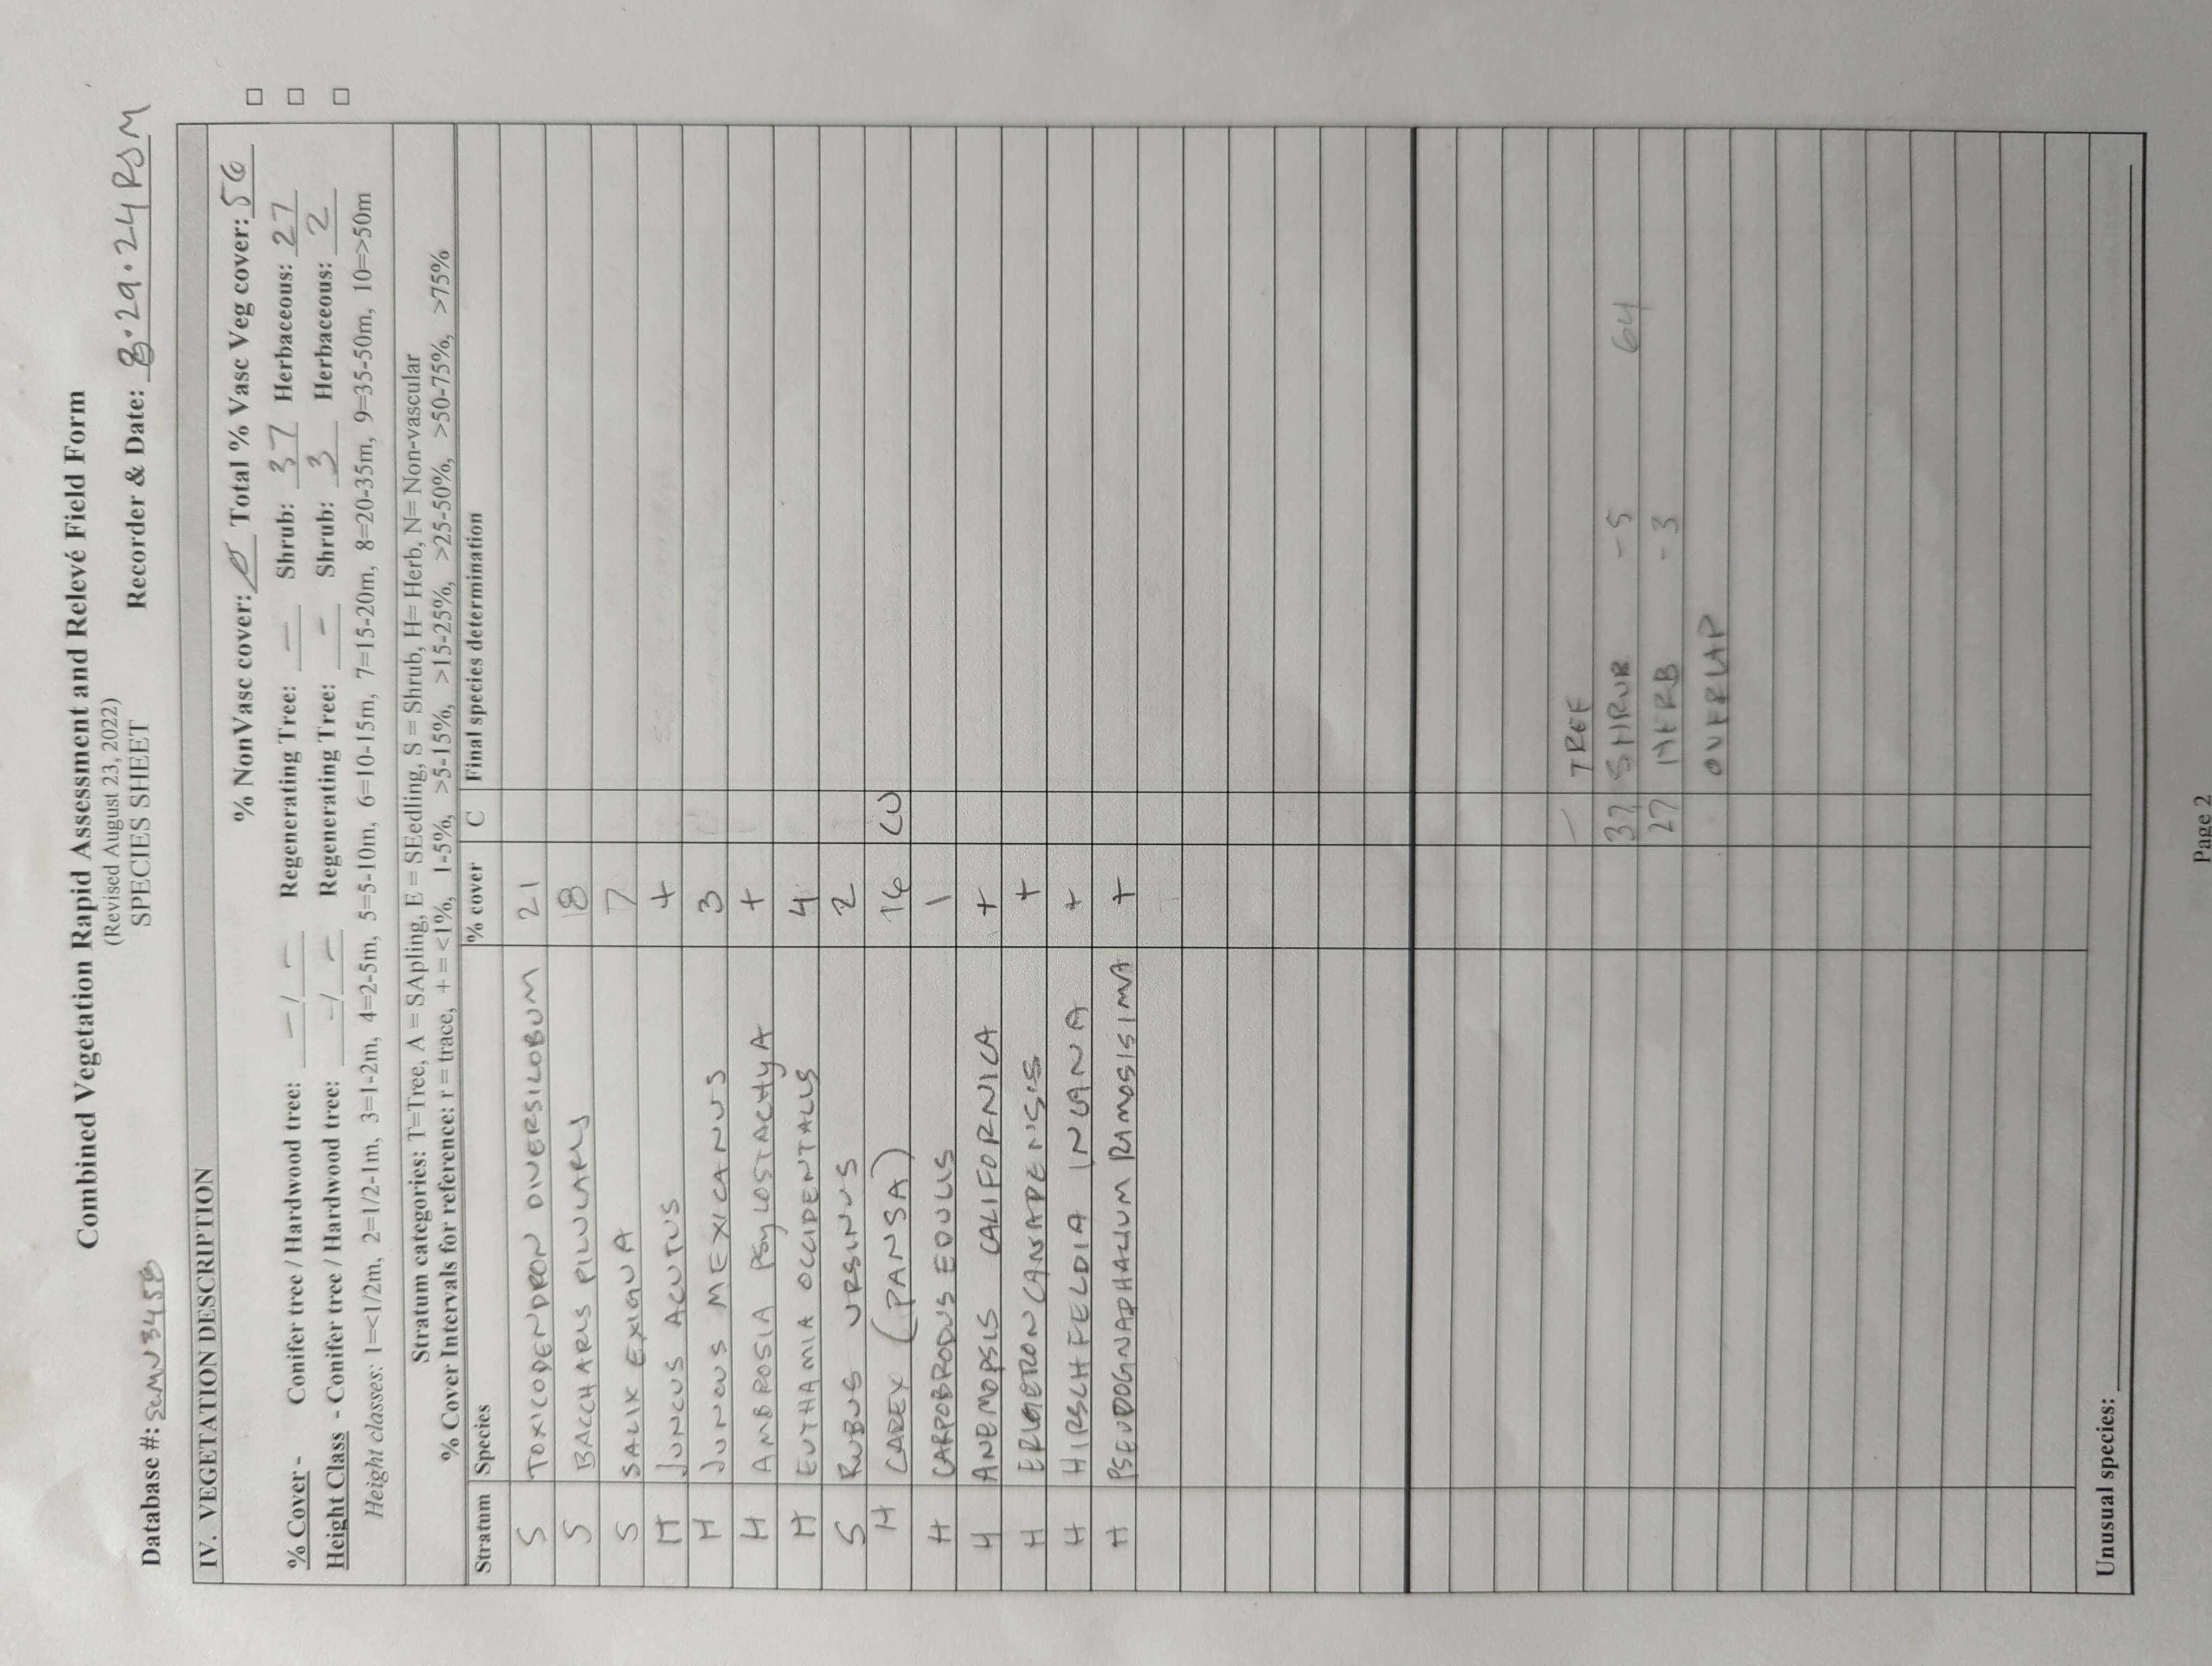 Combined Vegetation Rapid Assessment and Relevé Field Form
(Revised August 23, 2022)
SPECIES SHEET
Database #: SCMN3458 Recorder & Date: 8.29.24 RSM
IV. VEGETATION DESCRIPTION
% NonVasc cover: Ø Total % Vasc Veg cover: 56 □
% Cover - Conifer tree / Hardwood tree: - / - Regenerating Tree: - Shrub: 37 Herbaceous: 27 □
Height Class - Conifer tree / Hardwood tree: - / - Regenerating Tree: - Shrub: 3 Herbaceous: 2 □
Height classes: 1=<1/2m, 2=1/2-1m, 3=1-2m, 4=2-5m, 5=5-10m, 6=10-15m, 7=15-20m, 8=20-35m, 9=35-50m, 10=>50m
Stratum categories: T=Tree, A = SApling, E = SEedling, S = Shrub, H= Herb, N= Non-vascular
% Cover Intervals for reference: r = trace, + = <1%, 1-5%, >5-15%, >15-25%, >25-50%, >50-75%, >75%
Stratum Species % cover C Final species determination
S TOXICODENDRON DIVERSILOBUM 21
S BACCHARIS PILULARIS 8
S SALIX EXIGUA 7
H JUNCUS ACUTUS +
H JUNCUS MEXICANUS 3
H AMBROSIA PSYLOSTACHYA +
H EUTHAMIA OCCIDENTALIS 4
S RUBUS URSINUS 2
H CAREX (PANSA) 16 CU
H CARPOBRODUS EDULIS 1
H ANEMOPSIS CALIFORNICA +
H ERIGERON CANADENSIS +
H HIRSCHFELDIA INCANA +
H PSEUDOGNAPHALIUM RAMOSISIMA +
- TREE
37 SHRUB -5 64
27 HERB -3
OVERLAP
Unusual species:
Page 2